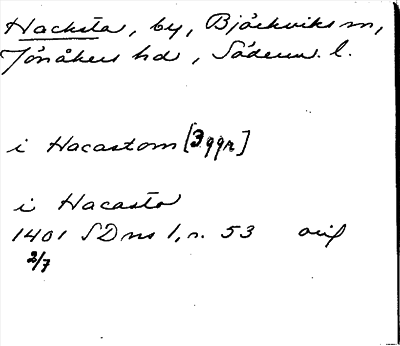 Hacksta, by, Björkviks sn,
Jönåkers hd, Söderm. l.
i Hacastom [3 ggr]
i Hacasto
1401 SDns 1, n. 53 orig
2/7